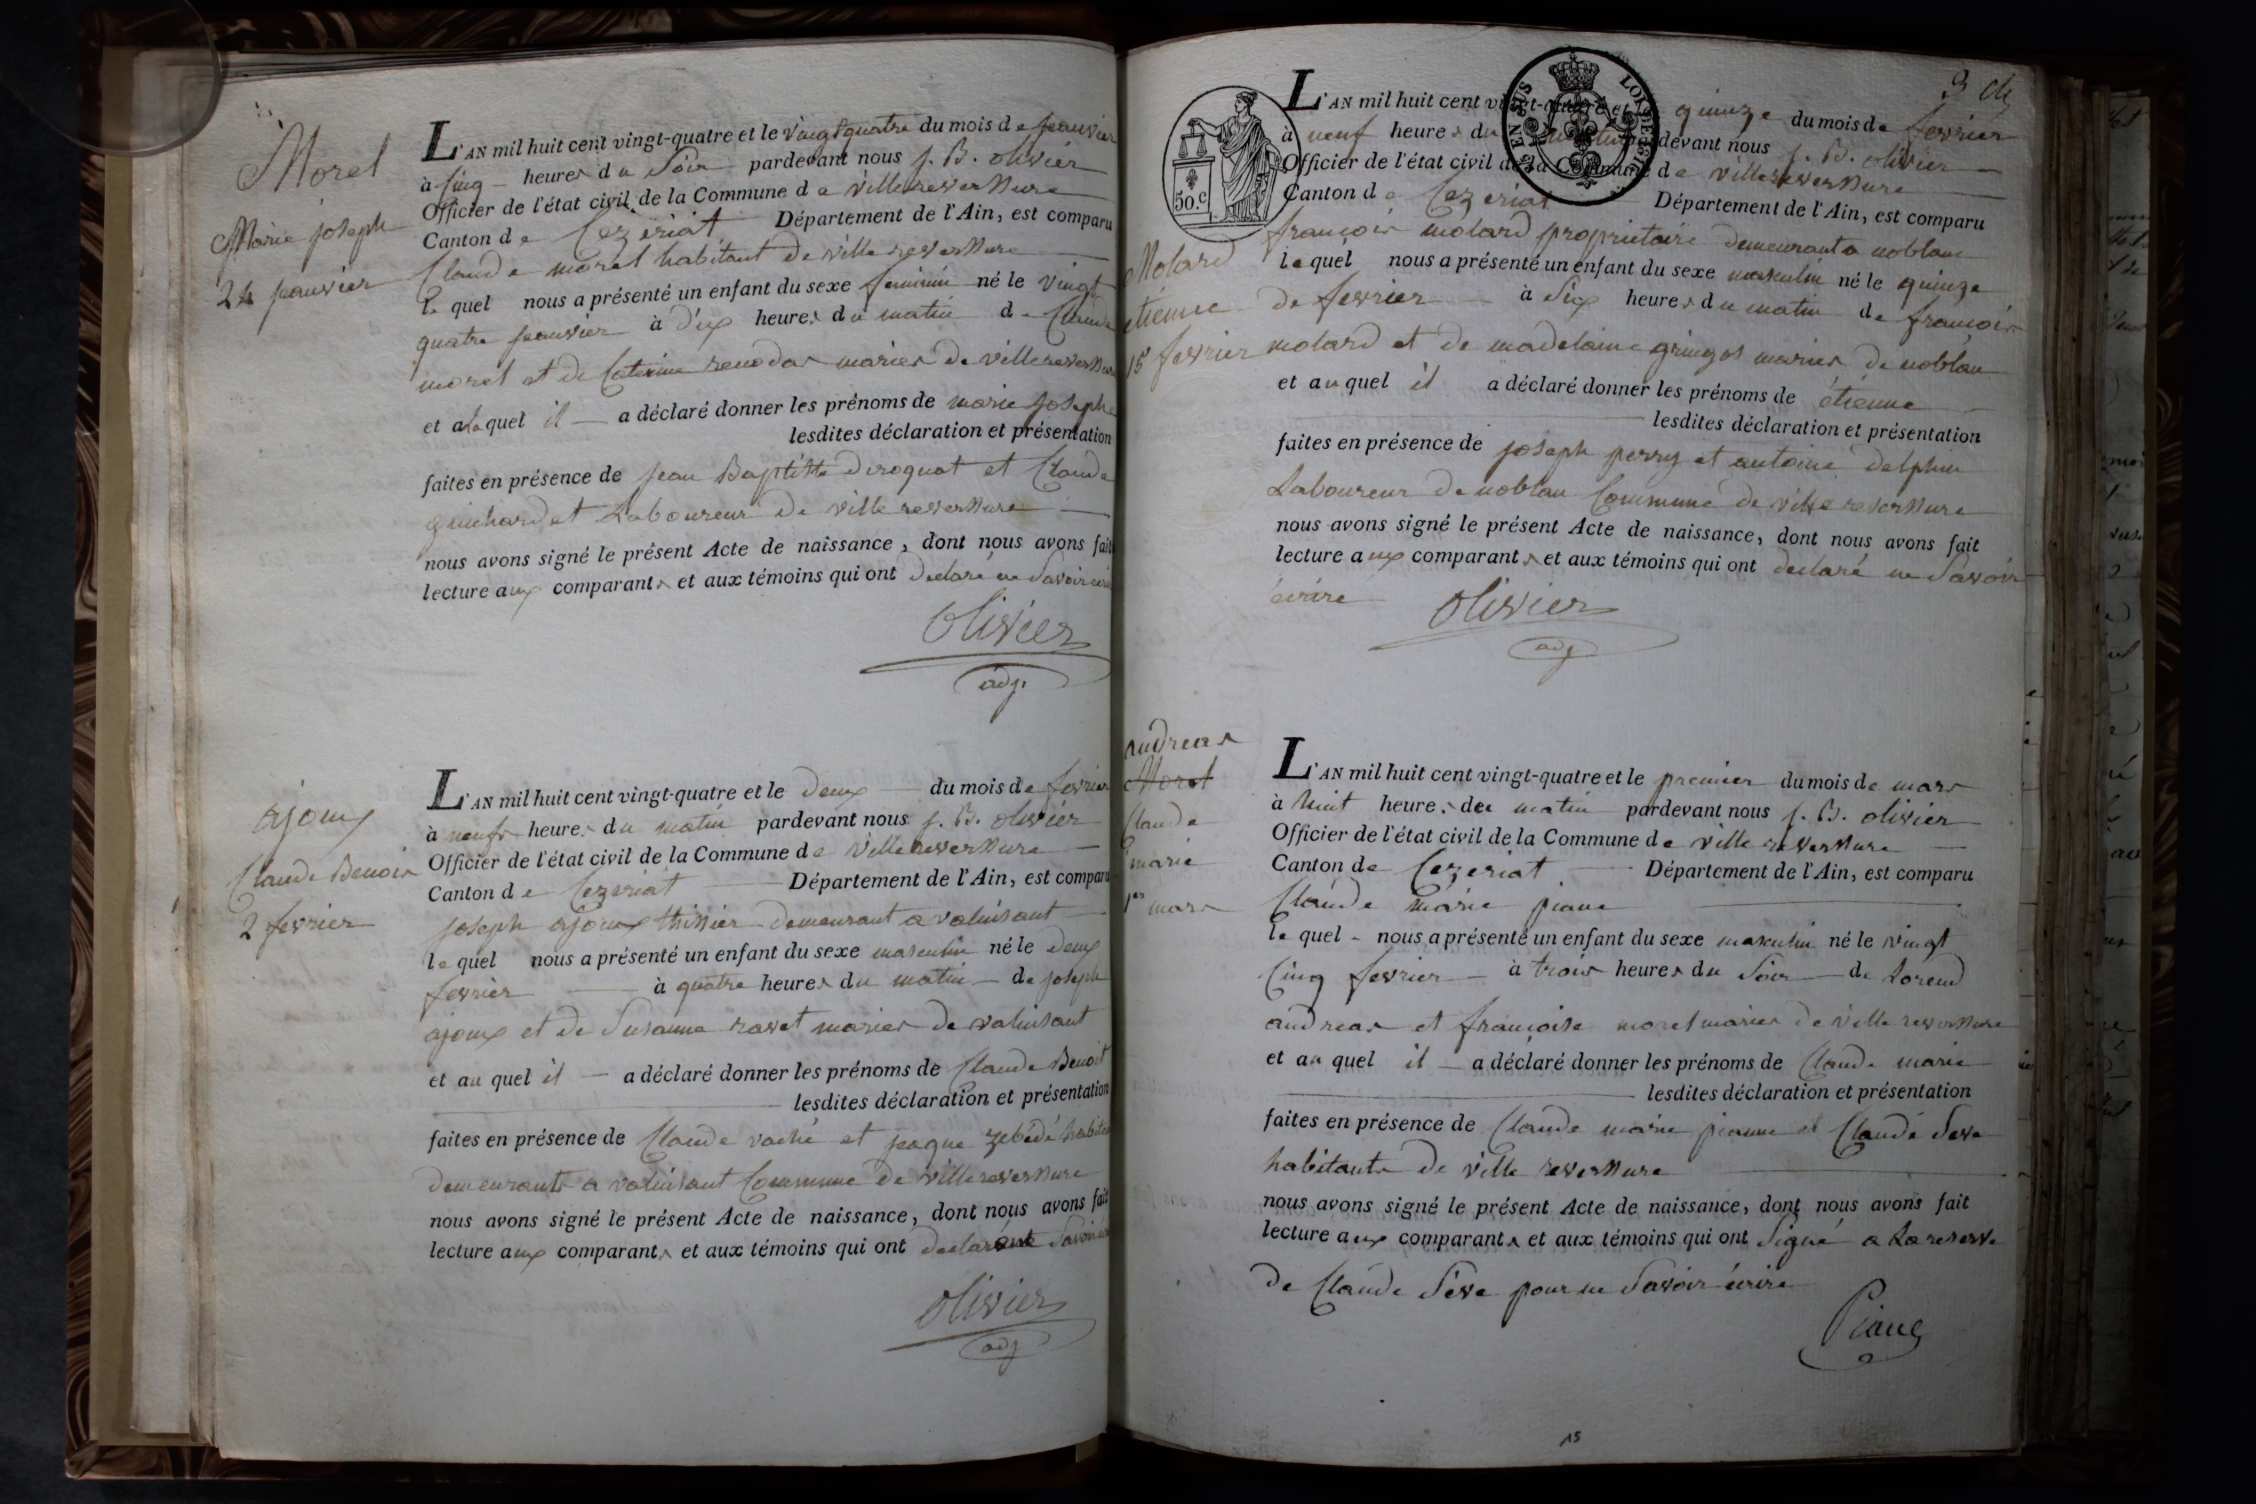 Morel
Marie joseph
24 janvier
L'AN mil huit cent vingt-quatre et le vingt quatre du mois de janvier
à cinq heures du Soir pardevant nous J. B. olivier
Officier de l'état civil de la Commune de villereversure
Canton de Cezeriat Département de l'Ain, est comparu
Claude morel habitant de ville reversure
le quel nous a présenté un enfant du sexe feminin né le vingt
quatre janvier à dix heures du matin de Claude
morel et de Caterine renodas mariés de villereversure
et à laquel il a déclaré donner les prénoms de marie joseph
lesdites déclaration et présentation
faites en présence de jean Baptiste et Claude
guichardet Laboureur de ville reversure
nous avons signé le présent Acte de naissance, dont nous avons fait
lecture aux comparants et aux témoins qui ont declaré ne Savoir écrire
Olivier
adj.
ajoux
Claude Benoit
2 fevrier
L'AN mil huit cent vingt-quatre et le deux du mois de fevrier
à neufs heures du matin pardevant nous J. B. olivier
Officier de l'état civil de la Commune de villereversure
Canton de Cezeriat Département de l'Ain, est comparu
joseph ajoux demeurant a valuisant
le quel nous a présenté un enfant du sexe masculin né le deux
fevrier à quatre heures du matin de joseph
ajoux et de Susanne ravet mariés de valuisant
et au quel il a déclaré donner les prénoms de Claude Benoit
lesdites déclaration et présentation
faites en présence de Claude vaché et jaque zebédé
demeurants a valuisant Commune de villereversure
nous avons signé le présent Acte de naissance, dont nous avons fait
lecture aux comparants et aux témoins qui ont Savoir
Olivier
adj
50.C
EN SUS
L. OI DE
Molard
étienne
15 fevrier
L'AN mil huit cent vingt-quatre et le quinze du mois de fevrier
à neuf heures du devant nous J. B. olivier
Officier de l'état civil de la Commune de villereversure
Canton de Cezeriat Département de l'Ain, est comparu
françois molard proprietaire demeurant a noblan
lequel nous a présenté un enfant du sexe masculin né le quinze
de fevrier à Six heures du matin de françois
molard et de madelaine gringos mariés de noblan
et au quel il a déclaré donner les prénoms de étienne
lesdites déclaration et présentation
faites en présence de joseph perry et antoine delphin
Laboureur de noblan Commune de ville reversure
nous avons signé le présent Acte de naissance, dont nous avons fait
lecture aux comparants et aux témoins qui ont declaré ne Savoir
écrire
Olivier
adj
andreas
Morel
Claude
marie
1er mars
L'AN mil huit cent vingt-quatre et le premier du mois de mars
à huit heures du matin pardevant nous J. B. olivier
Officier de l'état civil de la Commune de ville reversure
Canton de Cezeriat Département de l'Ain, est comparu
Claude marie piane
le quel nous a présenté un enfant du sexe masculin né le vingt
Cinq fevrier à trois heures du Soir de Lorend
andreas et françoise morel mariés de ville reversure
et au quel il a déclaré donner les prénoms de Claude marie
lesdites déclaration et présentation
faites en présence de Claude marie pianne et Claude Seve
habitants de ville reversure
nous avons signé le présent Acte de naissance, dont nous avons fait
lecture aux comparants et aux témoins qui ont Signé a La reserve
de Claude Séve pour ne Savoir écrire
Piane
15